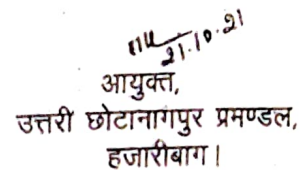 21.10.21
आयुक्त,
उत्तरी छोटानागपुर प्रमण्डल,
हजारीबाग।